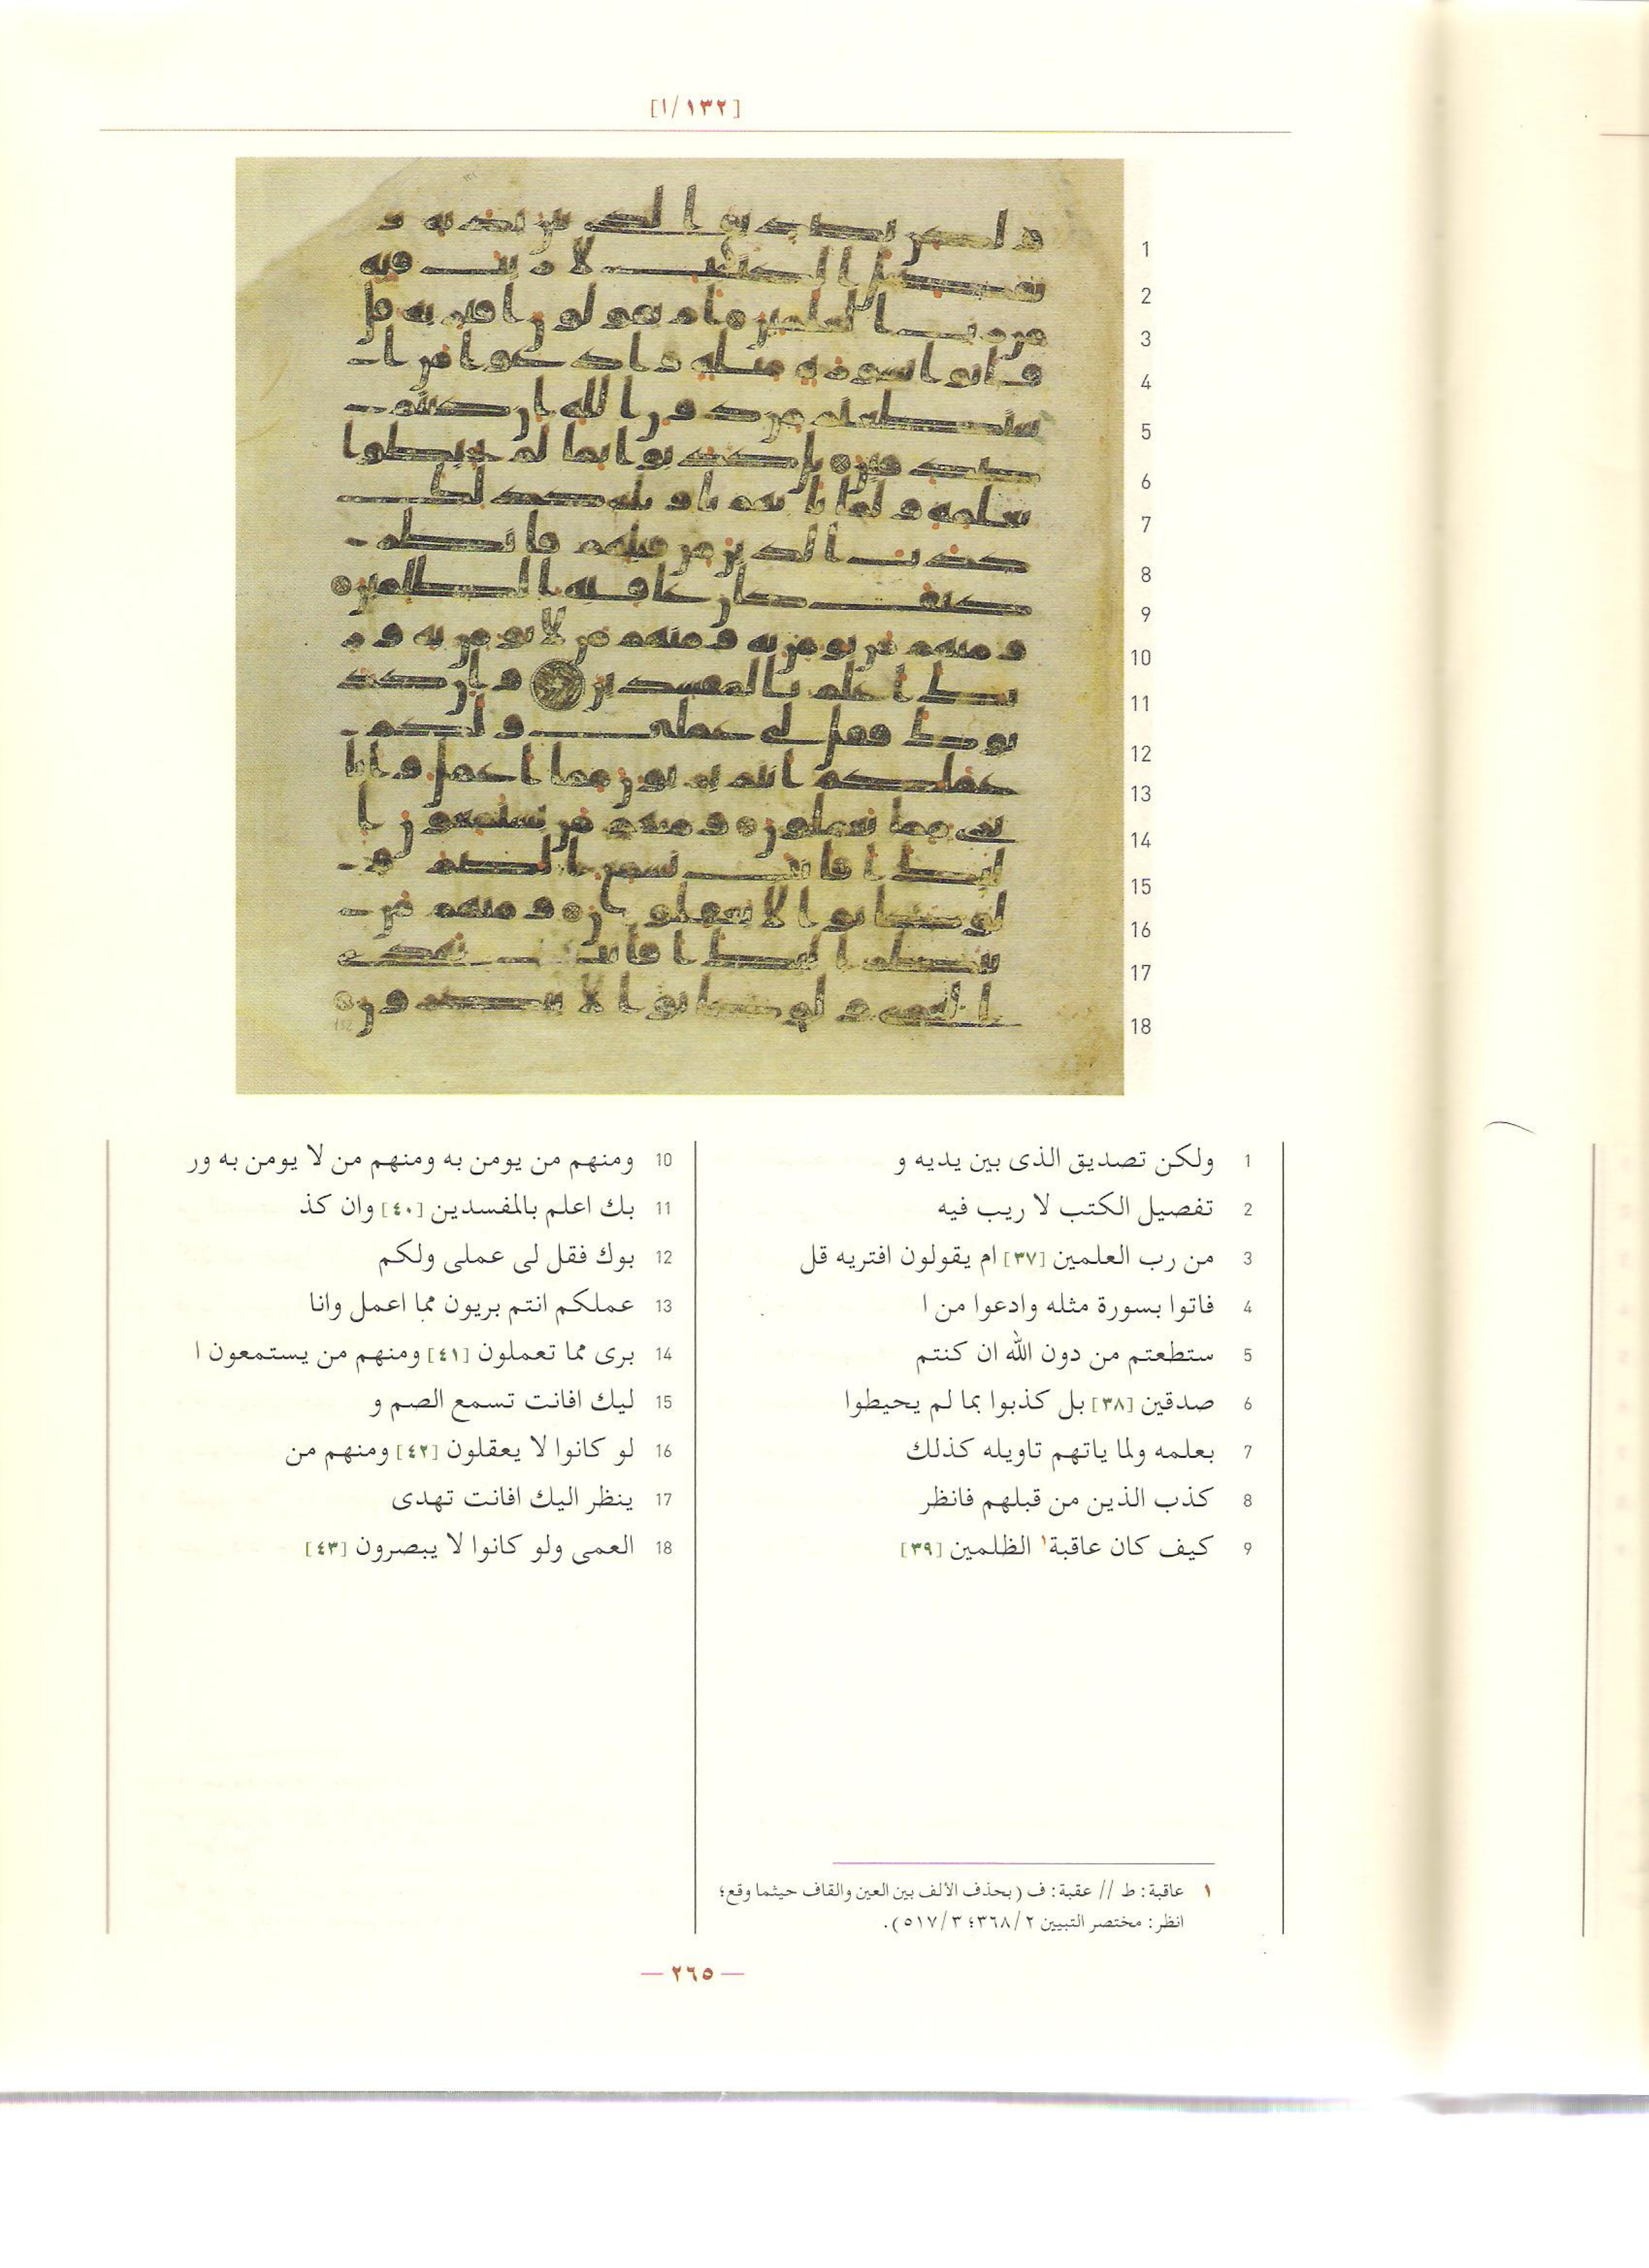 [١/١٣٢]
1
2
3
4
5
6
7
8
9
10
11
12
13
14
15
16
17
18
1 ولكن تصديق الذى بين يديه و
2 تفصيل الكتب لا ريب فيه
3 من رب العلمين [٣٧] ام يقولون افتريه قل
4 فاتوا بسورة مثله وادعوا من ا
5 ستطعتم من دون الله ان كنتم
6 صدقين [٣٨] بل كذبوا بما لم يحيطوا
7 بعلمه ولما ياتهم تاويله كذلك
8 كذب الذين من قبلهم فانظر
9 كيف كان عاقبة١ الظلمين [٣٩]
10 ومنهم من يومن به ومنهم من لا يومن به ور
11 بك اعلم بالمفسدين [٤٠] وان كذ
12 بوك فقل لى عملى ولكم
13 عملكم انتم بريون مما اعمل وانا
14 برى مما تعملون [٤١] ومنهم من يستمعون ا
15 ليك افانت تسمع الصم و
16 لو كانوا لا يعقلون [٤٢] ومنهم من
17 ينظر اليك افانت تهدى
18 العمى ولو كانوا لا يبصرون [٤٣]
١ عاقبة: ط // عقبة: ف (بحذف الألف بين العين والقاف حيثما وقع؛
انظر: مختصر التبيين ٢/٣٦٨؛ ٣/٥١٧).
— ٢٦٥ —